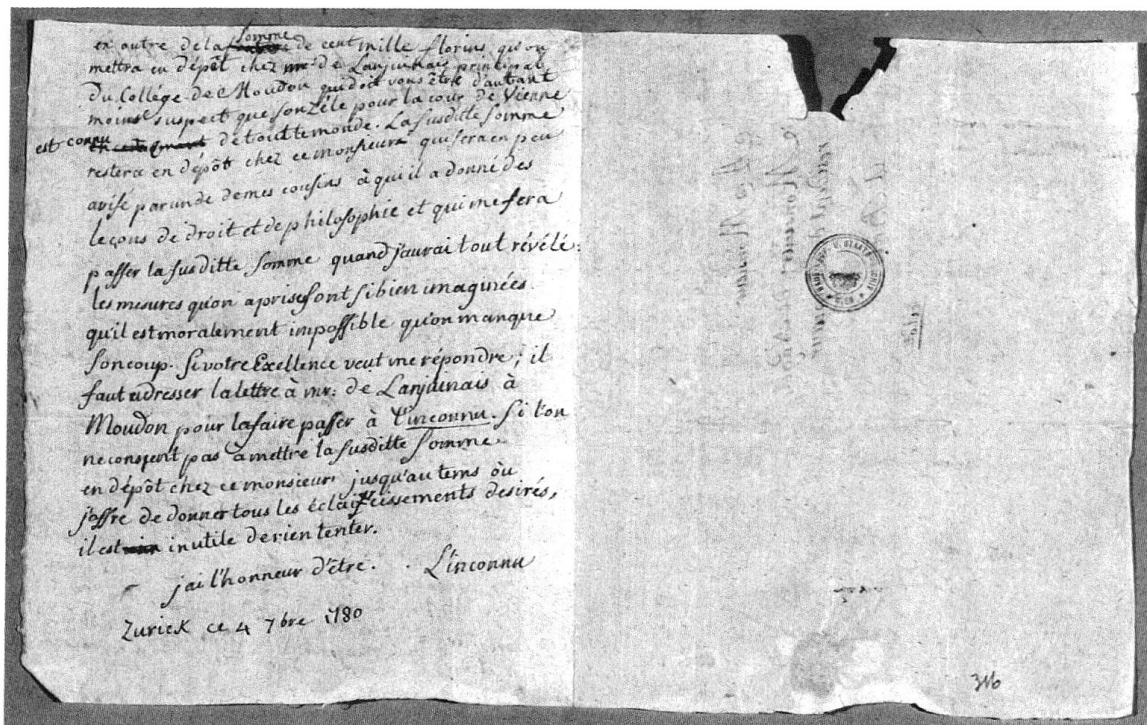 en outre de la somme de cent mille florins qu'on
mettra en dépôt chez mr. de Lanjuinais principal
du Collége de Moudon qui doit vous être d'autant
moins suspect que son zéle pour la cour de Vienne
est connu de tout le monde. La susditte somme
restera en dépôt chez ce monsieur qui sera en peu
avisé par un de de mes cousins à qui il a donné des
leçons de droit et de philosophie et qui me fera
passer la susditte somme quand j'aurai tout révélé:
les mesures qu'on a prises sont si bien imaginées
qu'il est moralement impossible qu'on manque
son coup. Si votre Excellence veut me répondre; il
faut adresser la lettre à mr: de Lanjuinais à
Moudon pour la faire passer à l'inconnu. Si l'on
ne consent pas à mettre la susditte somme
en dépôt chez ce monsieur jusqu'au tems où
j'offre de donner tous les éclaircissements desirés,
il est inutile de rien tenter.
j'ai l'honneur d'être. L'inconnu
Zurick ce 4 7bre 1780
316